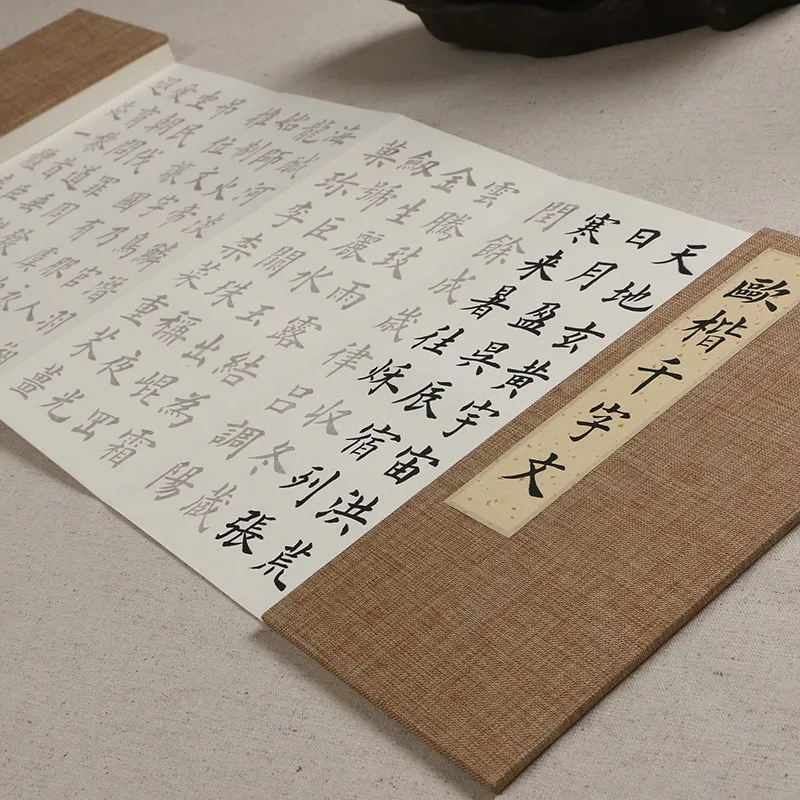 歐楷千字文
天地玄黃宇宙洪荒
日月盈昃辰宿列張
寒来暑往秌收冬藏
閏餘成歲律呂調陽
雲騰致雨露結為霜
金生麗水玉出崐岡
劔號巨闕珠稱夜光
菓珍李柰菜重芥薑
海鹹河淡鱗潛羽翔
龍師火帝鳥官人
始制文字乃服衣
推位讓國有虞
吊民伐罪周
坐朝問道
愛育黎首臣
遐迩一體